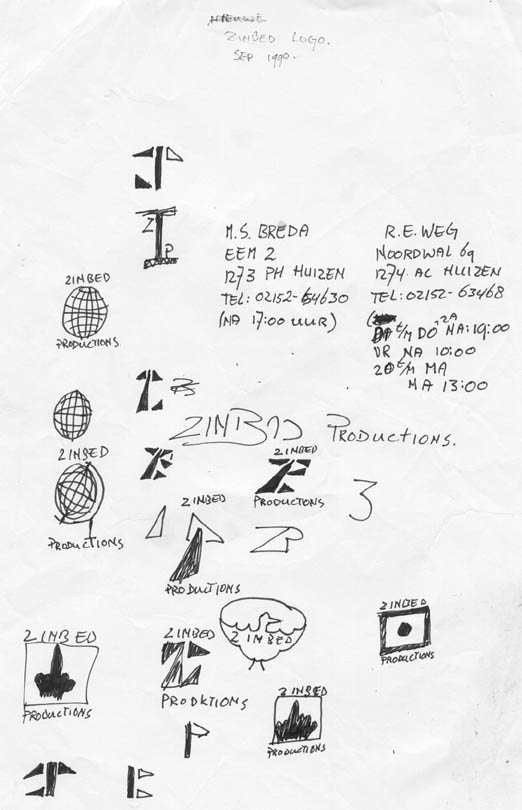 ZINBED LOGO.
SEP 1990.
Z
P
M.S. BREDA
EEM 2
1273 PH HUIZEN
TEL: 02152-64630
(NA 17:00 UUR)
R.E. WEG
NOORDWAL 69
1274 AC HUIZEN
TEL: 02152-63468
T/M DO, ZA NA: 19:00
VR NA 10:00
ZO T/M MA
NA 13:00
ZINBED
PRODUCTIONS
ZINBED PRODUCTIONS.
ZINBED
PRODUCTIONS
ZINBED
PRODUCTIONS
3
ZINBED
PRODUCTIONS
ZP
ZINBED
ZINBED
PRODUCTIONS
ZINBED
PRODUCTIONS
ZINBED
PRODKTIONS
ZINBED
PRODUCTIONS
P